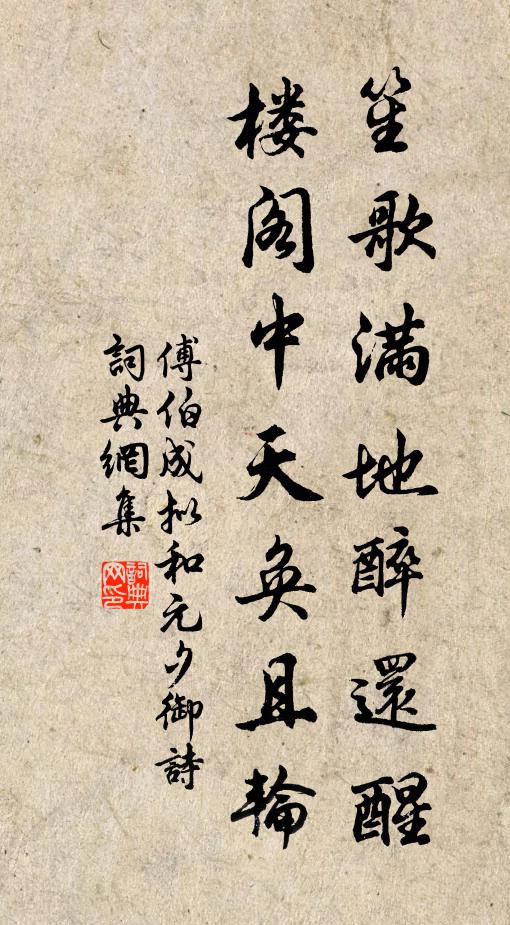 笙歌滿地醉還醒
楼阁中天奂且輪
傅伯成拟和元夕御詩
詞典網集
詞典网印